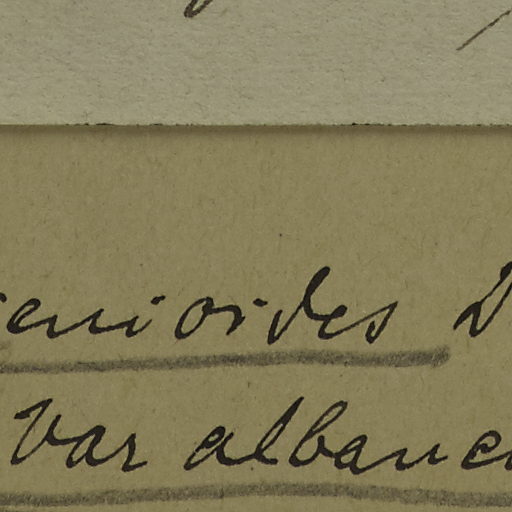 enioides D
Var albane